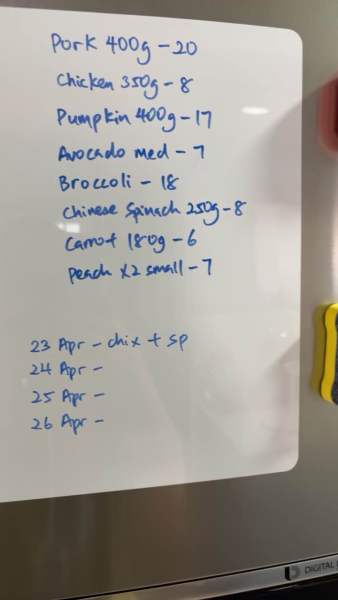 Pork 400g - 20
Chicken 350g - 8
Pumpkin 400g - 17
Avocado med - 7
Broccoli - 18
Chinese Spinach 250g - 8
Carrot 180g - 6
Peach x2 small - 7
23 Apr - chix + sp
24 Apr -
25 Apr -
26 Apr -
DIGITAL